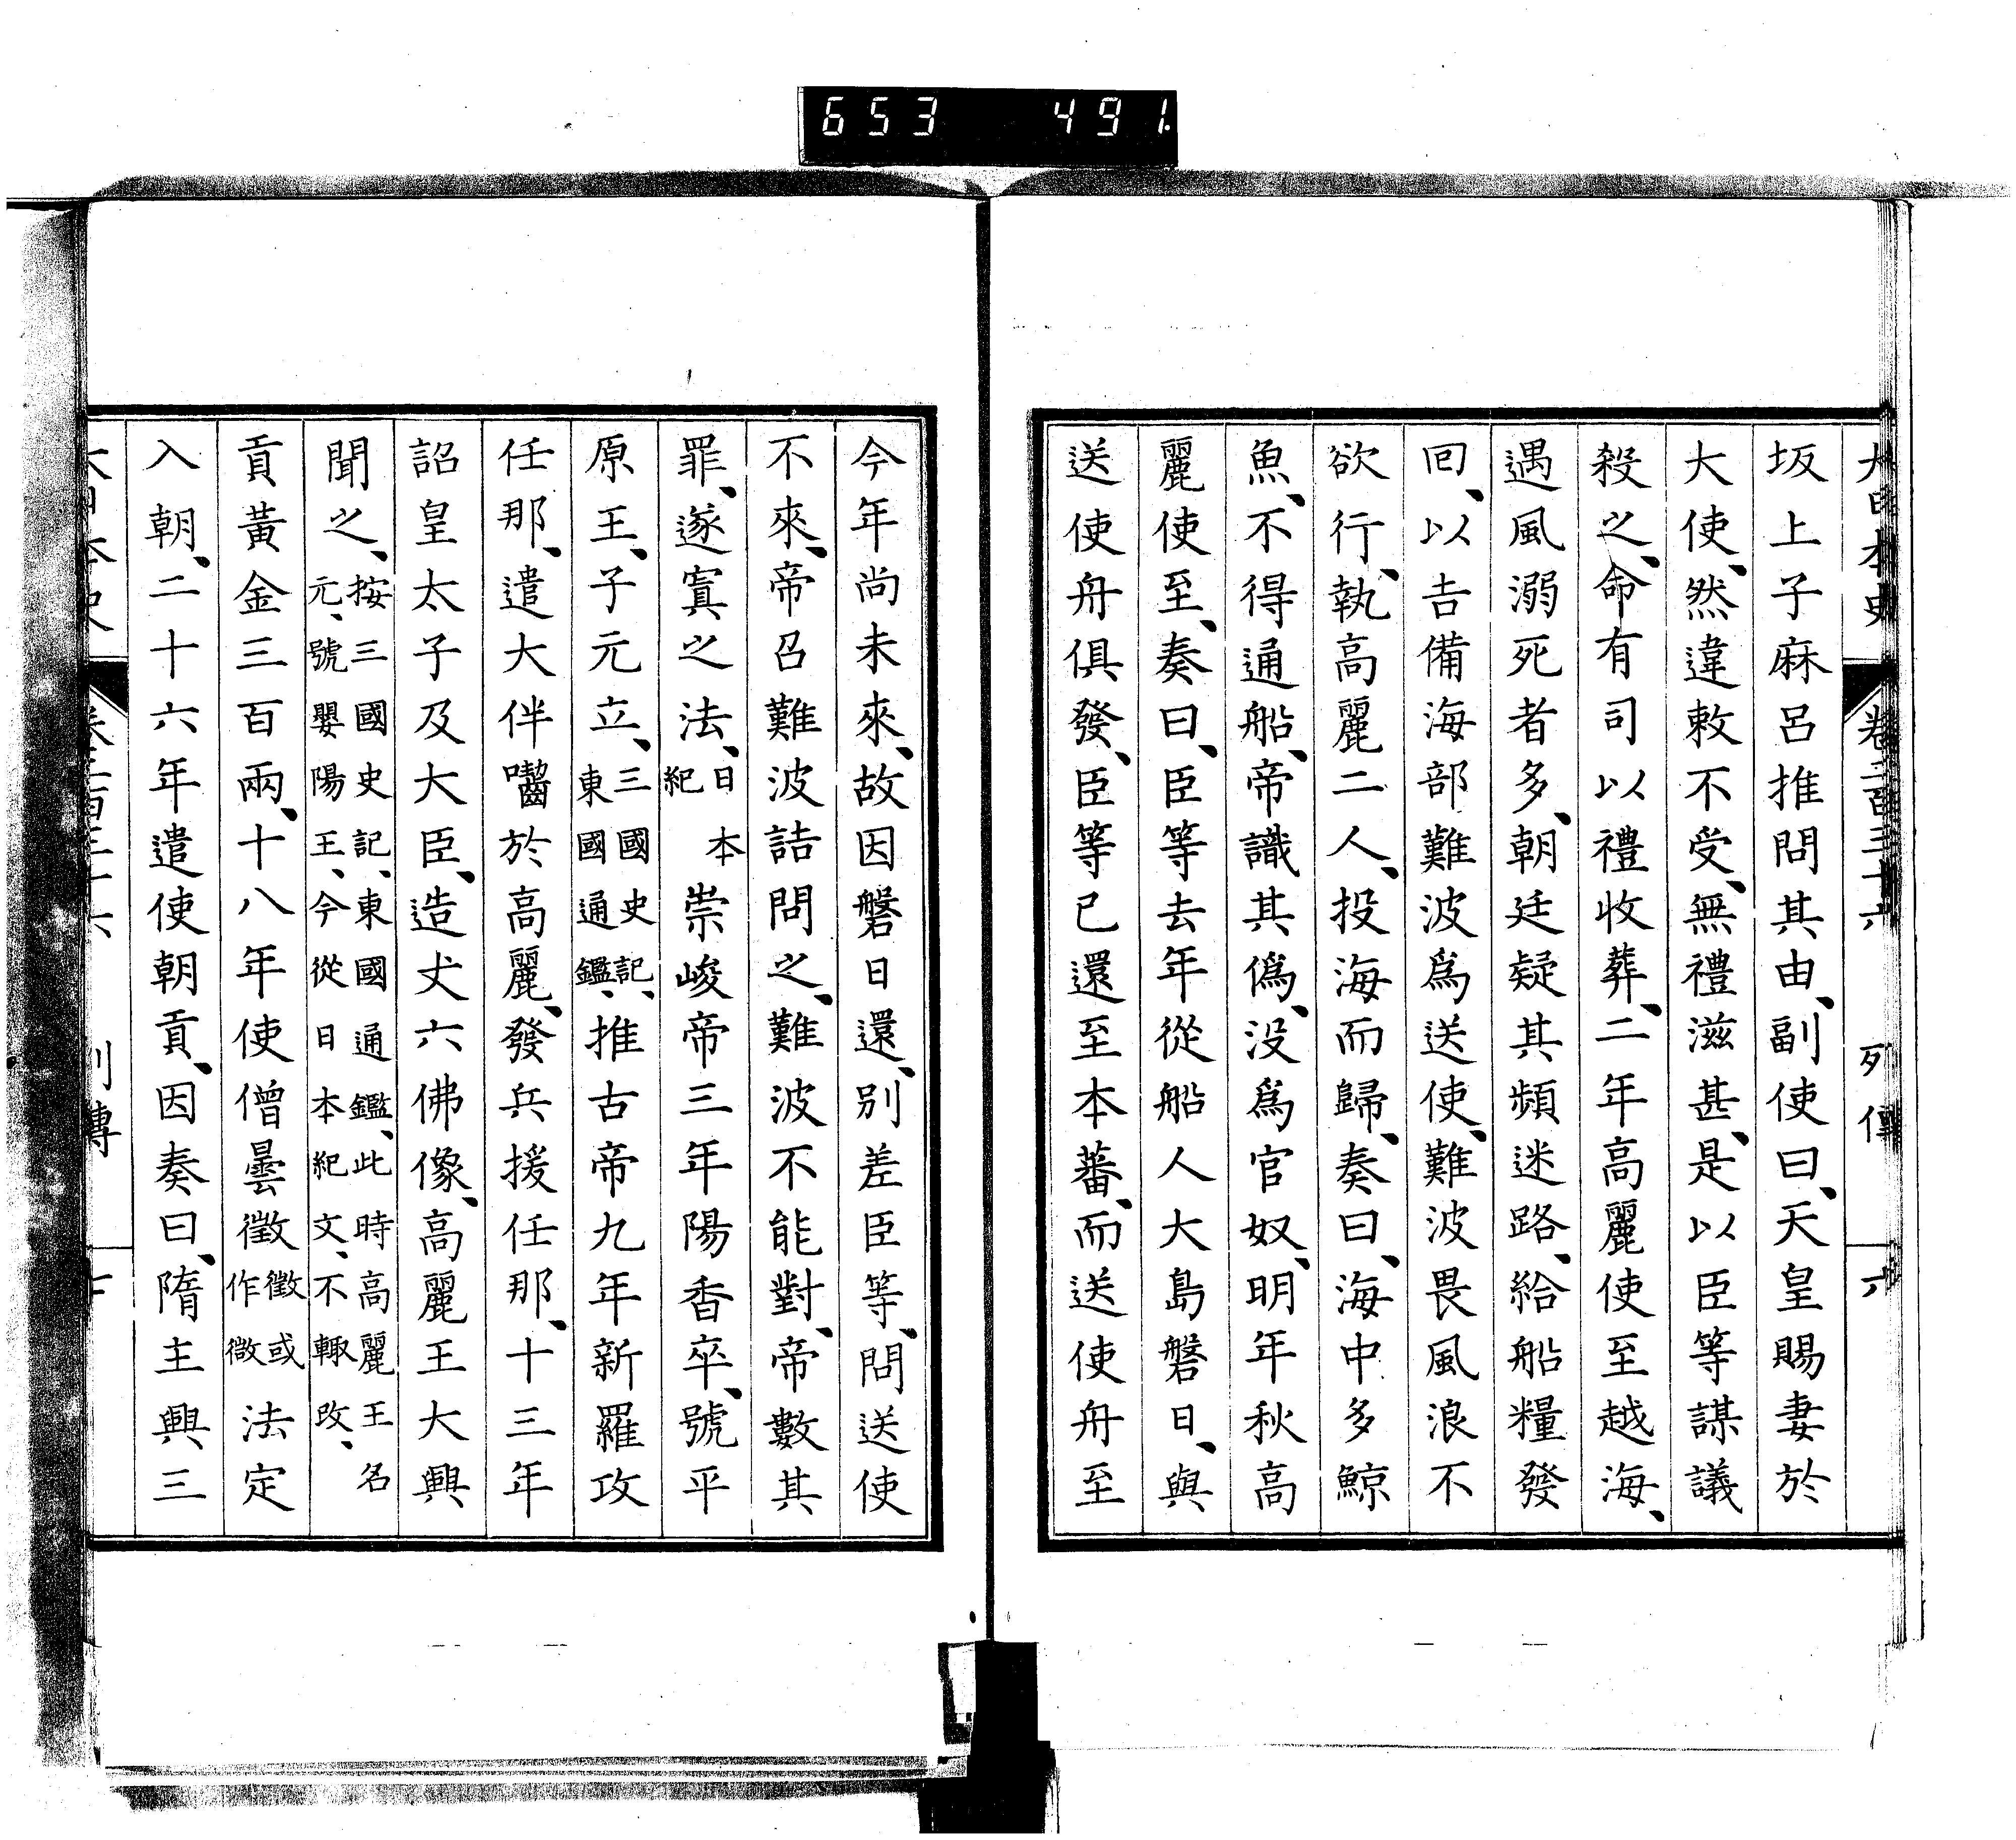 653 491.
大日本史 卷二百三十六 列傳 六
坂上子麻呂推問其由、副使曰、天皇賜妻於
大使、然違敕不受、無禮滋甚、是以臣等謀議
殺之、命有司以禮收葬、二年高麗使至越海、
遇風溺死者多、朝廷疑其頻迷路、給船糧發
回、以吉備海部難波爲送使、難波畏風浪不
欲行、執高麗二人、投海而歸、奏曰、海中多鯨
魚、不得通船、帝識其僞、没爲官奴、明年秋高
麗使至、奏曰、臣等去年從船人大島磐日、與
送使舟俱發、臣等已還至本蕃、而送使舟至
今年尚未來、故因磐日還、別差臣等、問送使
不來、帝召難波詰問之、難波不能對、帝數其
罪、遂寘之法、日本紀 崇峻帝三年陽香卒、號平
原王、子元立、三國史記、東國通鑑、推古帝九年新羅攻
任那、遣大伴囓於高麗、發兵援任那、十三年
詔皇太子及大臣、造丈六佛像、高麗王大興
聞之、按三國史記、東國通鑑、此時高麗王名元、號嬰陽王、今從日本紀文、不輙改、
貢黃金三百兩、十八年使僧曇徵徵或作微法定
入朝、二十六年遣使朝貢、因奏曰、隋主興三
大日本史 卷二百三十六 列傳 七